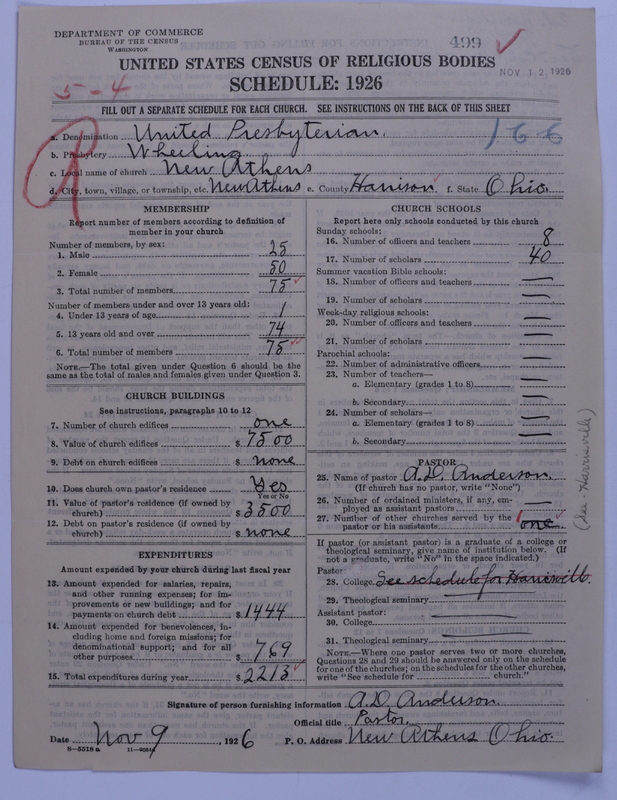 DEPARTMENT OF COMMERCE
BUREAU OF THE CENSUS
WASHINGTON
499
NOV 12 1926
UNITED STATES CENSUS OF RELIGIOUS BODIES
5-4
SCHEDULE: 1926
FILL OUT A SEPARATE SCHEDULE FOR EACH CHURCH. SEE INSTRUCTIONS ON THE BACK OF THIS SHEET
R
166
a. Denomination United Presbyterian.
b. Presbytery Wheeling
c. Local name of church New Athens
d. City, town, village, or township, etc. New Athens e. County Harrison f. State Ohio.
MEMBERSHIP
Report number of members according to definition of
member in your church
Number of members, by sex:
1. Male 25
2. Female 50
3. Total number of members 75
Number of members under and over 13 years old:
4. Under 13 years of age 1
5. 13 years old and over 74
6. Total number of members 75
NOTE.—The total given under Question 6 should be
same as the total of males and females given under Question 3.
CHURCH BUILDINGS
See instructions, paragraphs 10 to 12
7. Number of church edifices one
8. Value of church edifices $ 7500
9. Debt on church edifices $ none
10. Does church own pastor's residence Yes
Yes or No
11. Value of pastor's residence (if owned by
church) $ 3500
12. Debt on pastor's residence (if owned by
church) $ none
EXPENDITURES
Amount expended by your church during last fiscal year
13. Amount expended for salaries, repairs,
and other running expenses; for im-
provements or new buildings; and for
payments on church debt $ 1444
14. Amount expended for benevolences, in-
cluding home and foreign missions; for
denominational support; and for all
other purposes $ 769
15. Total expenditures during year $ 2213
CHURCH SCHOOLS
Report here only schools conducted by this church
Sunday schools:
16. Number of officers and teachers 8
17. Number of scholars 40
Summer vacation Bible schools:
18. Number of officers and teachers —
19. Number of scholars —
Week-day religious schools:
20. Number of officers and teachers —
21. Number of scholars —
Parochial schools:
22. Number of administrative officers —
23. Number of teachers—
a. Elementary (grades 1 to 8) —
b. Secondary —
24. Number of scholars—
a. Elementary (grades 1 to 8) —
b. Secondary —
PASTOR
25. Name of pastor A. D. Anderson.
(If church has no pastor, write "None")
26. Number of ordained ministers, if any, em-
ployed as assistant pastors —
27. Number of other churches served by the
pastor or his assistants 1 one.
If pastor (or assistant pastor) is a graduate of a college or
theological seminary, give name of institution below. (If
not a graduate, write "No" in the space indicated.)
Pastor:
28. College See schedule for Harrisville.
29. Theological seminary
Assistant pastor:
30. College
31. Theological seminary
NOTE.—Where one pastor serves two or more churches,
Questions 28 and 29 should be answered only on the schedule
for one of the churches; on the schedules for the other churches,
write "See schedule for church."
(See Harrisville)
Signature of person furnishing information A. D. Anderson.
Official title Pastor.
Date Nov 9, 1926 P. O. Address New Athens Ohio.
8-5518 a